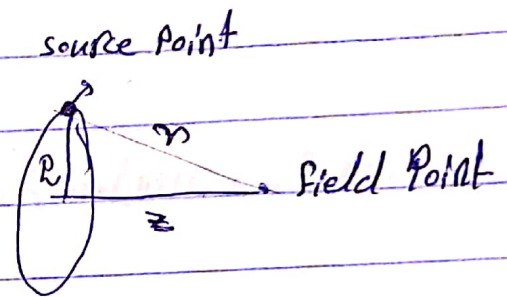 source Point
r
R
field Point
z